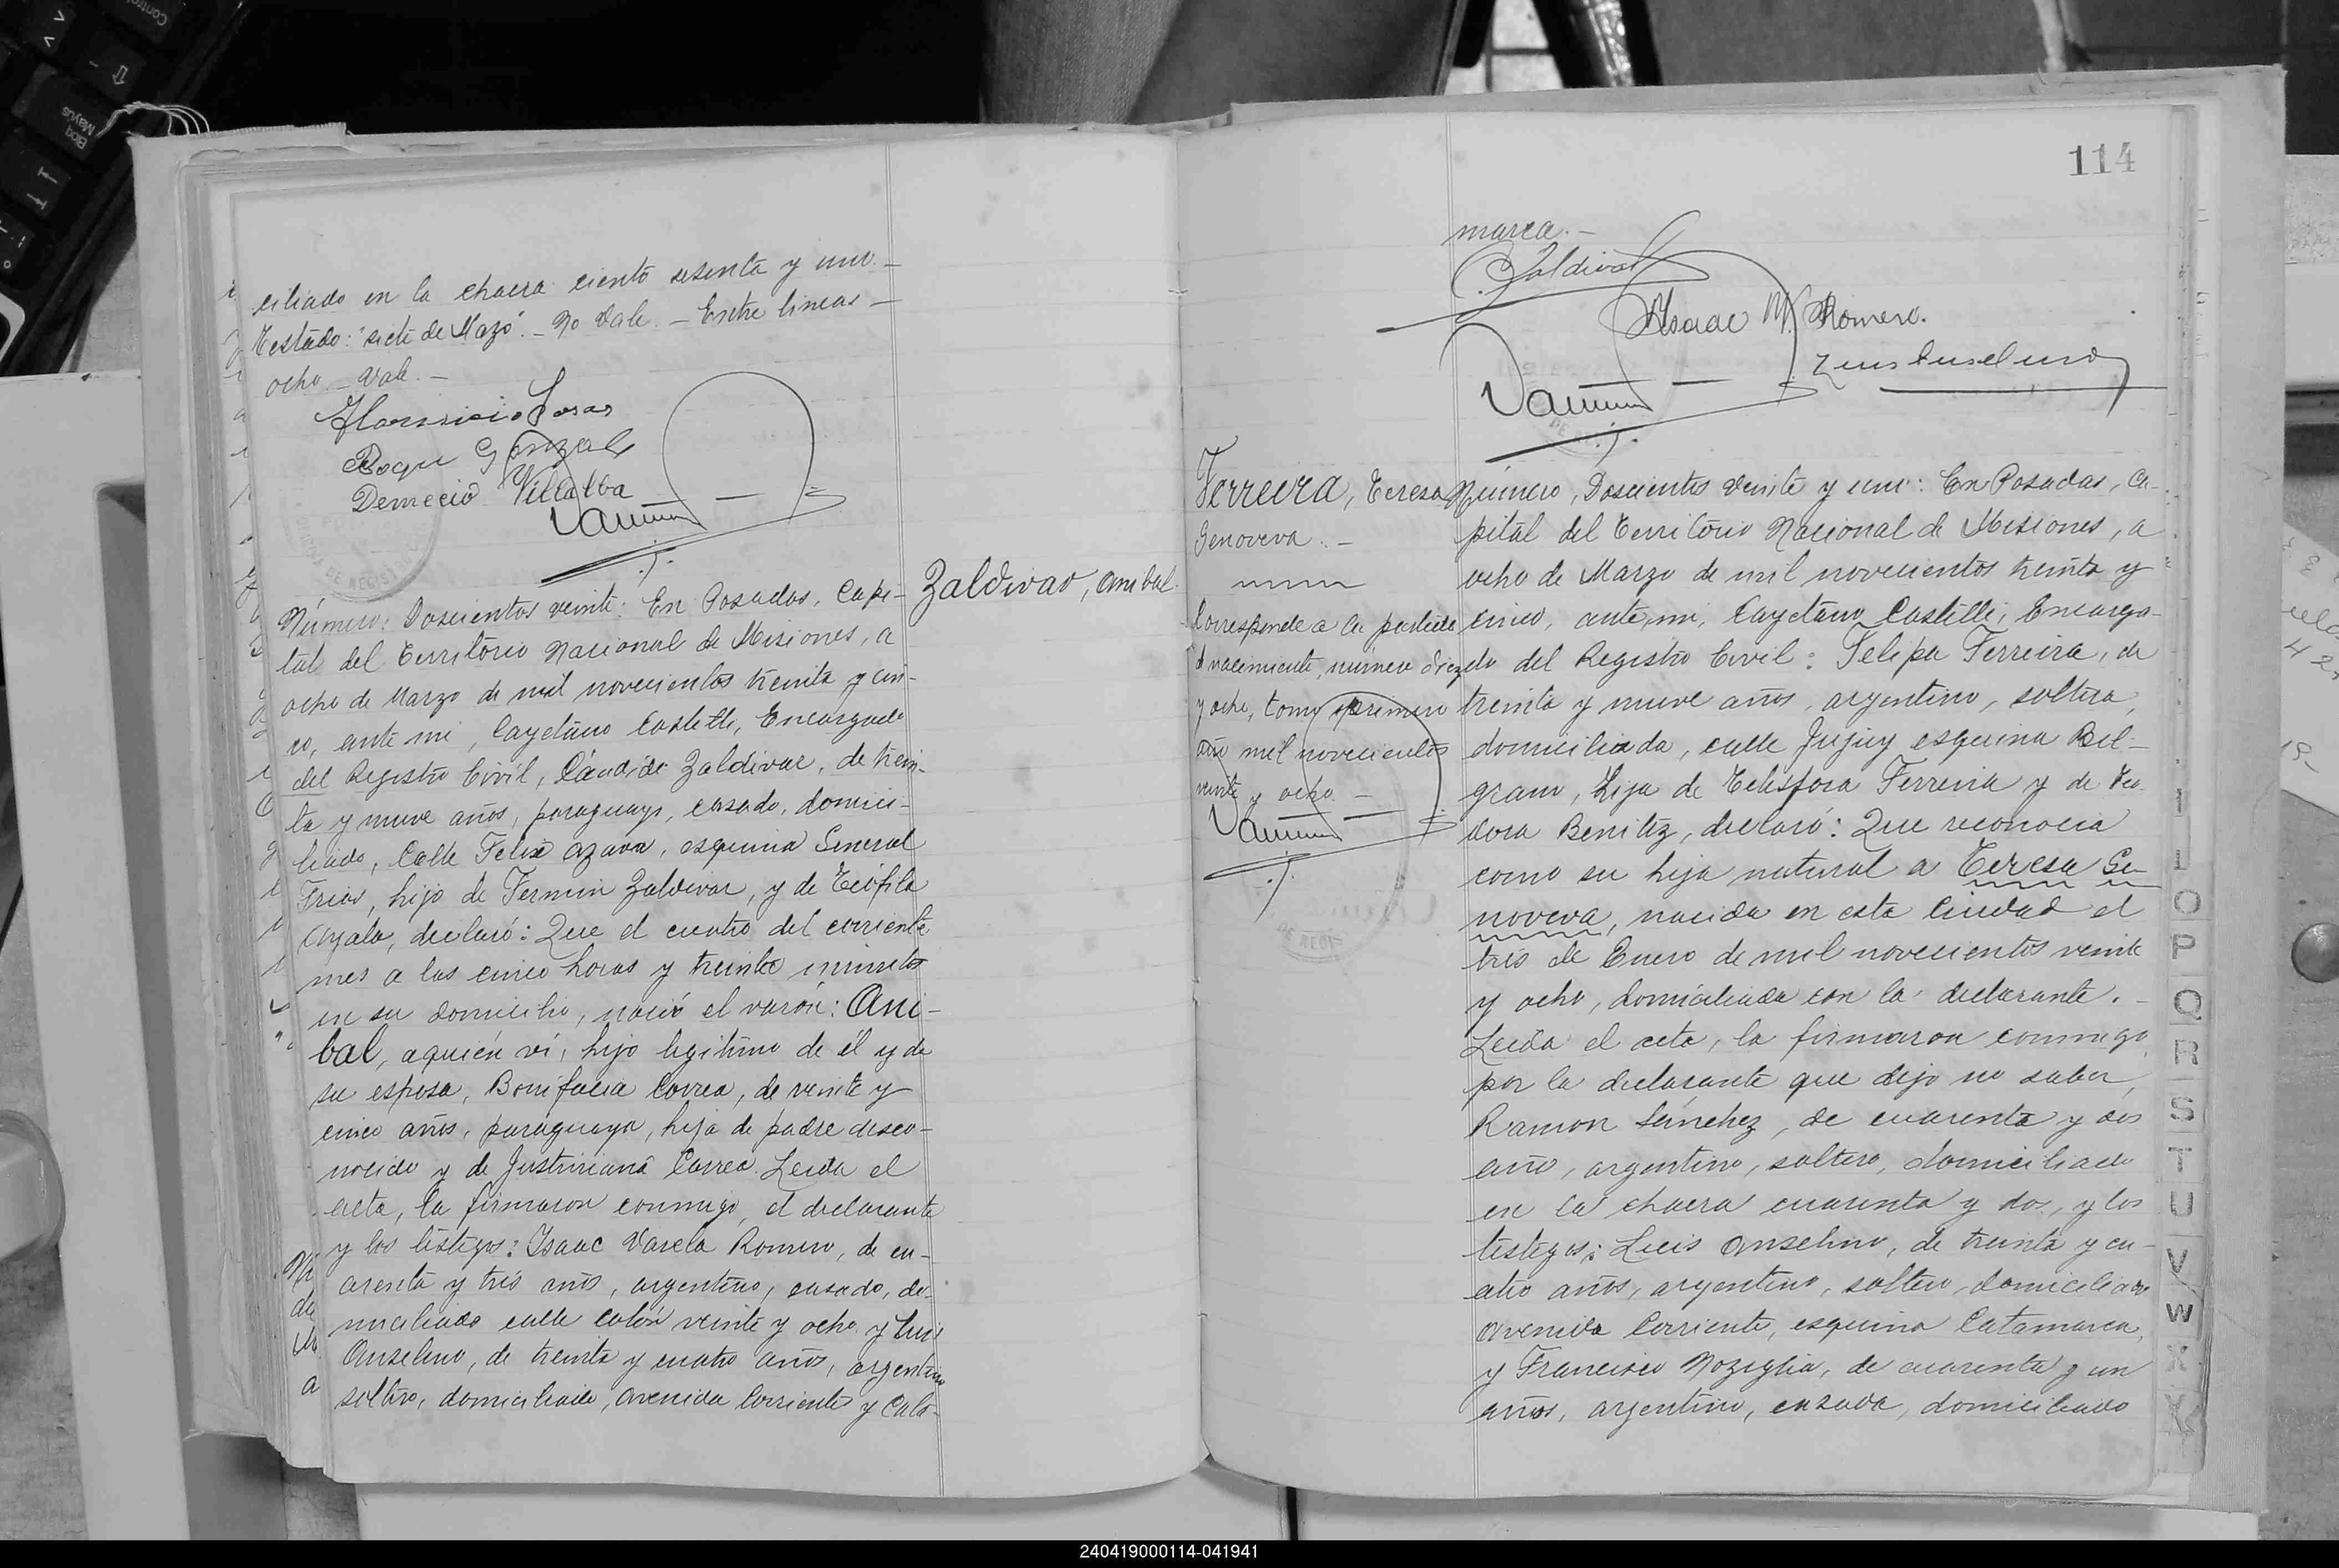 ciliado en la chacra ciento sesenta y uno.—
Testado: "siete de Mazo".— No Vale.— Entre lineas—
ocho.— Vale.—
Roque Gonzale
Demecio Villalba
Número: Doscientos veinte: En Posadas, Capi-
tal del Territorio Nacional de Misiones, a
ocho de Marzo de mil novecientos treinta y cin-
co, ante mi, Cayetano Castelli, Encargado
del Registro Civil, Cándido Zaldivar, de trein-
ta y nueve años, paraguayo, casado, domici-
liado, Calle Felix Azara, esquina General
Frias, hijo de Fermin Zaldivar, y de Teófila
Ayala, declaró: Que el cuatro del corriente
mes a las cinco horas y treinta minutos
en su domicilio, nació el varón: Ani-
bal, aquién ví, hijo legitimo de él y de
su esposa, Bonifacia Correa, de veinte y
cinco años, paraguaya, hija de padre desco-
nocido y de Justiniana Correa. Leida el
acta, la firmaron conmigo, el declarante
y los testigos: Isaac Varela Romero, de cu-
arenta y tres años, argentino, casado, do-
miciliado calle Colón veinte y ocho y Luis
Anselmo, de treinta y cuatro años, argentino
soltero, domiciliado, Avenida Corriente y Cata-
Zaldivar, Anibal.
114
marca.—
Zaldivar
Isaac V. Romero.
Luis Anselmo
Ferreira, Teresa
Genoveva.—
Corresponde a la partida
d nacimiento, número diez
y ocho, tomo primero
año mil novecientos
veinte y ocho.—
Número, Doscientos veinte y uno: En Posadas, Ca-
pital del Territorio Nacional de Misiones, a
ocho de Marzo de mil novecientos treinta y
cinco, ante, mi, Cayetano Castelli, Encarga-
do del Registro Civil: Felipa Ferreira, de
treinta y nueve años, argentino, soltera,
domiciliada, calle Jujuy esquina Bel-
grano, hija de Telésfora Ferreira y de Teo-
dora Benitez, declaró: Que reconocia
como su hija natural a Teresa Ge-
noveva, nacida en esta Ciudad el
tres de Enero de mil novecientos veinte
y ocho, domiciliada con la declarante.—
Leida el acta, la firmaron conmigo,
por la declarante que dijo no saber,
Ramon Sánchez, de cuarenta y dos
año, argentino, soltero, domiciliado
en la chacra cuarenta y dos, y los
testigos: Luis Anselmo, de treinta y cu-
atro años, argentino, soltero, domiciliado
Avenida Corriente, esquina Catamarca,
y Francisco Noziglia, de cuarenta y un
años, argentino, casado, domiciliado
O
P
Q
R
S
T
U
V
W
X
Y
240419000114-041941